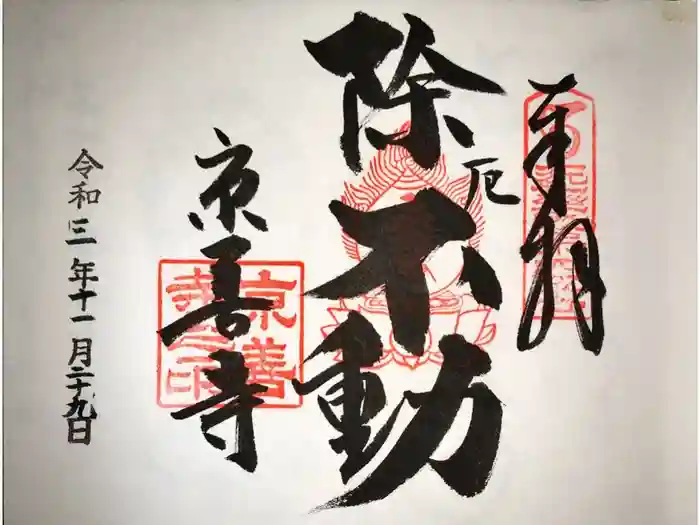 奉拝
除厄不動
京善寺
京善寺之印
令和三年十一月二十九日